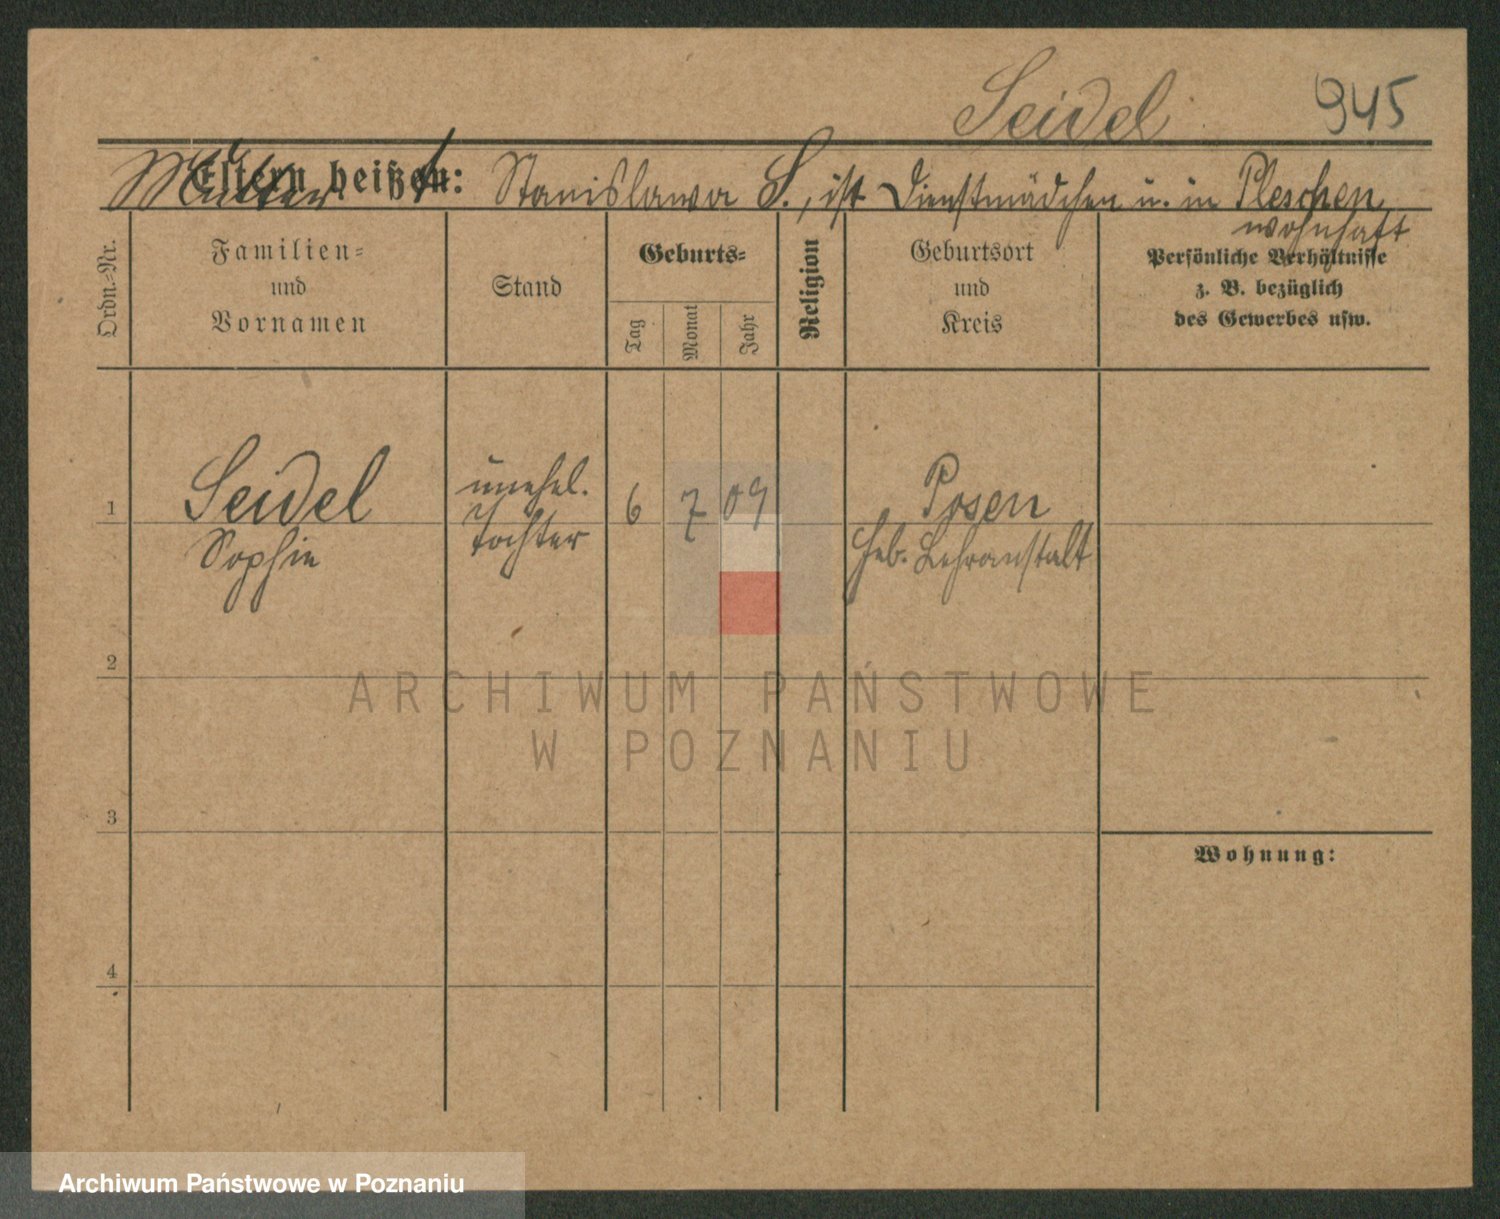 Seidel 945
Mutter
Eltern heißen: Stanislawa S., ist Dienstmädchen u. in Pleschen
wohnhaft
Ordn.-Nr.
Familien-
und
Vornamen
Stand
Geburts-
Tag
Monat
Jahr
Religion
Geburtsort
und
Kreis
Persönliche Verhältnisse
z. B. bezüglich
des Gewerbes usw.
1 Seidel unehel. 6 7 09 Posen
Sophie Tochter Heb. Lehranstalt
2
ARCHIWUM PAŃSTWOWE
W POZNANIU
3
Wohnung:
4
Archiwum Państwowe w Poznaniu